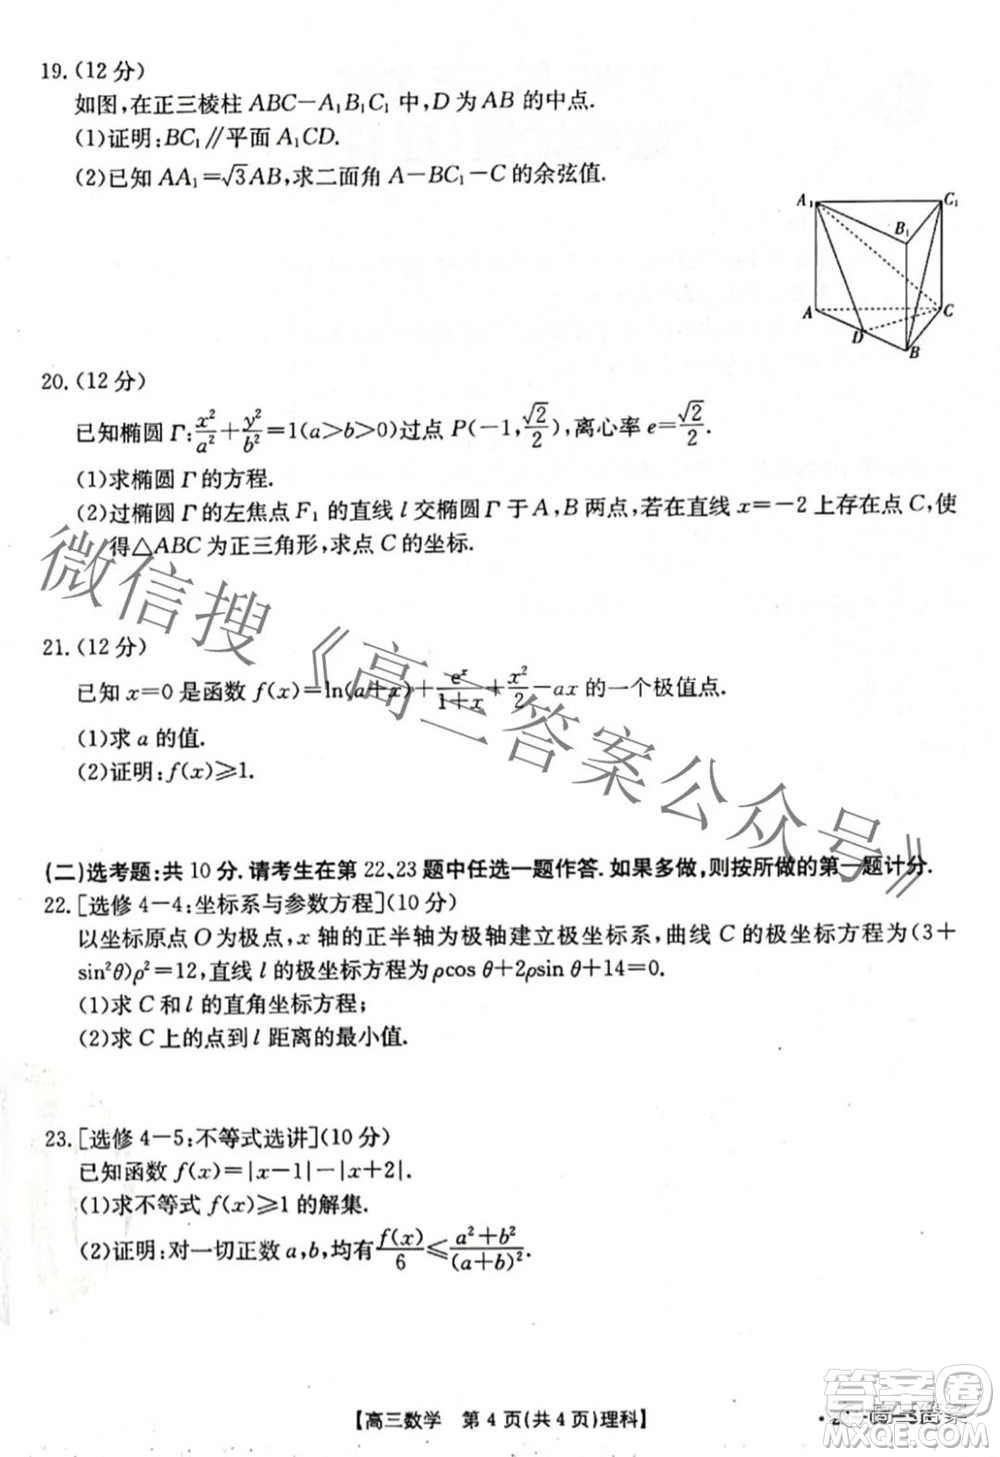 19.(12分)
如图,在正三棱柱 ABC-A₁B₁C₁ 中,D 为 AB 的中点.
(1)证明:BC₁∥平面 A₁CD.
(2)已知 AA₁=√3AB,求二面角 A-BC₁-C 的余弦值.
A₁
C₁
B₁
A
C
D
B
20.(12分)
已知椭圆 Γ:x²/a²+y²/b²=1(a>b>0)过点 P(-1,√2/2),离心率 e=√2/2.
(1)求椭圆 Γ 的方程.
(2)过椭圆 Γ 的左焦点 F₁ 的直线 l 交椭圆 Γ 于 A,B 两点,若在直线 x=-2 上存在点 C,使
得△ABC 为正三角形,求点 C 的坐标.
21.(12分)
已知 x=0 是函数 f(x)=ln(a+x)+eˣ/(1+x)+x²/2-ax 的一个极值点.
(1)求 a 的值.
(2)证明:f(x)≥1.
(二)选考题:共 10 分.请考生在第 22、23 题中任选一题作答.如果多做,则按所做的第一题计分.
22.[选修 4-4:坐标系与参数方程](10分)
以坐标原点 O 为极点,x 轴的正半轴为极轴建立极坐标系,曲线 C 的极坐标方程为(3+
sin²θ)ρ²=12,直线 l 的极坐标方程为 ρcos θ+2ρsin θ+14=0.
(1)求 C 和 l 的直角坐标方程;
(2)求 C 上的点到 l 距离的最小值.
23.[选修 4-5:不等式选讲](10分)
已知函数 f(x)=|x-1|-|x+2|.
(1)求不等式 f(x)≥1 的解集.
(2)证明:对一切正数 a,b,均有 f(x)/6≤(a²+b²)/(a+b)².
【高三数学 第 4 页(共 4 页)理科】
微信搜《高三答案公众号》
答案圈
MXQE.COM